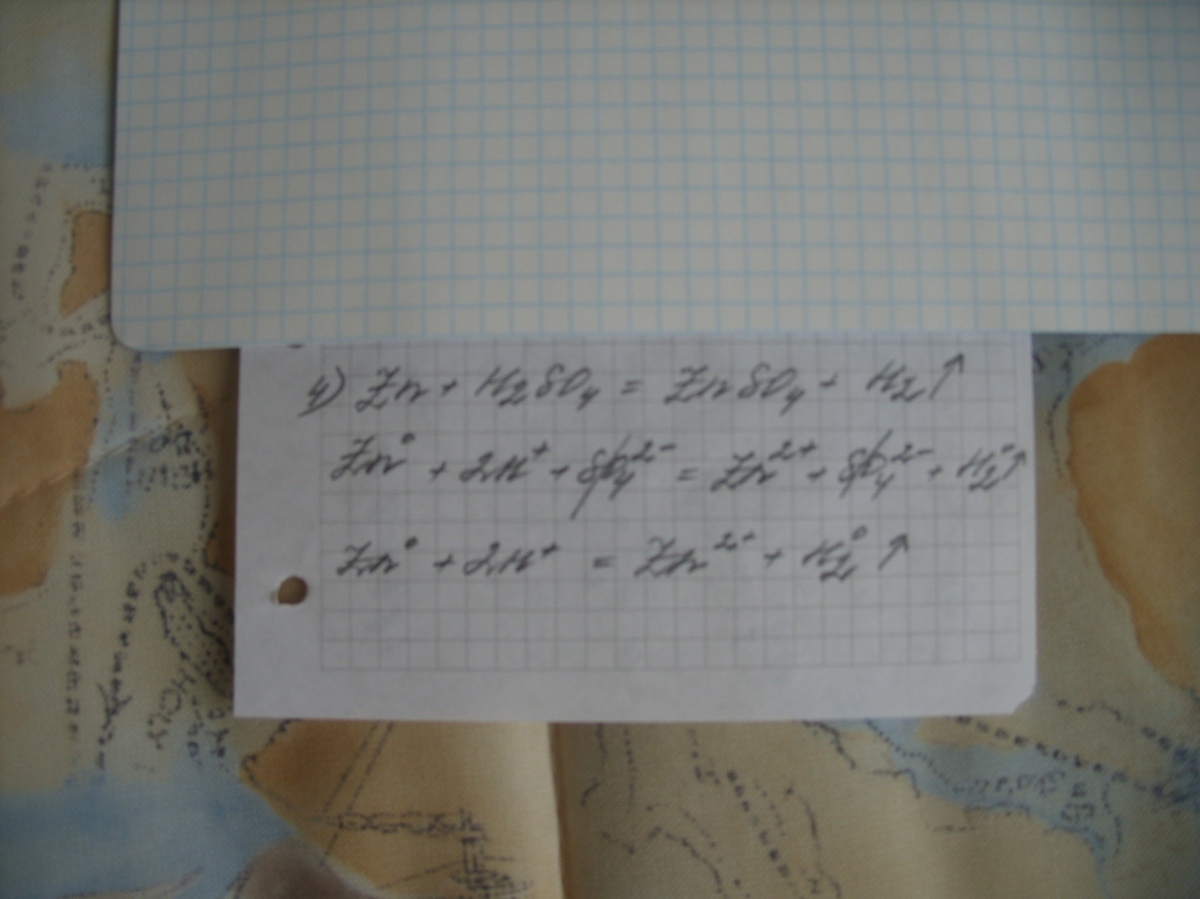 4) Zn + H2SO4 = ZnSO4 + H2↑
Zn⁰ + 2H⁺ + SO4²⁻ = Zn²⁺ + SO4²⁻ + H2⁰↑
Zn⁰ + 2H⁺ = Zn²⁺ + H2⁰↑